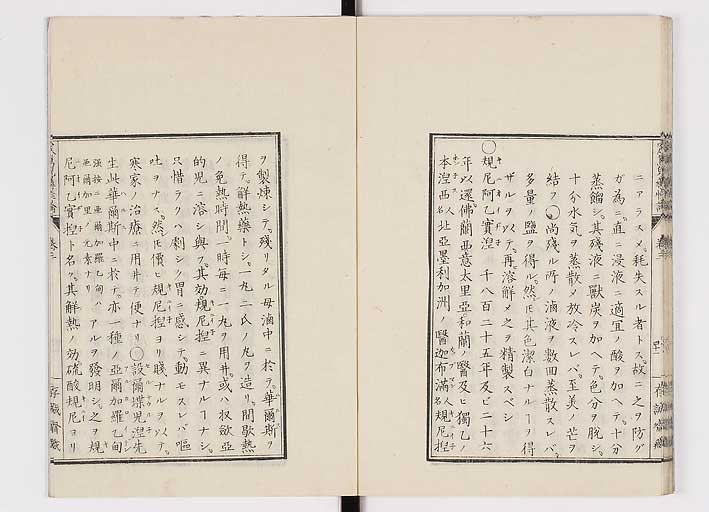 ニアラスメ耗失スル者トス。故ニ之ヲ防グ
ガ為ニ直ニ浸液ニ適宜ノ酸ヲ加ヘテ十分
蒸餾シ。其残液ニ獣炭ヲ加ヘテ。色分ヲ脱シ。
十分水気ヲ蒸散メ放冷スレバ。至美ノ芒ヲ
結フ○尚残ル所ノ滷液ヲ数回蒸散スレバ。
多量ノ鹽ヲ得ル。然𪜈其色潔白ナルヿヲ得
ザルヲ以テ。再溶解メ之ヲ精製スベシ
○規尼阿乙実涅 千八百二十五年及ビ二十六
年以還佛蘭西意太里亜和蘭ノ醫及ヒ獨乙ノ
本涅西人名北亞墨利加洲ノ醫迦布満人名規尼捏
ヲ製煉シテ。残リタル母滷中ニ於テ。華爾斯ヲ
得テ。解熱藥トシ。一九二氏ノ丸ヲ造リ。間歇熱
ノ免熱時間。一時毎ニ一九ヲ用井。或ハ収斂亞
的児ニ溶シ與フ。其効規尼捏ニ異ナルヿナシ。
只惜ラクハ劇シク胃ニ感シテ。動モスレバ嘔
吐ヲナス。然𪜈價ヒ規尼捏ヨリ賤ナルヲ以テ。
寒家ノ治療ニ用井テ便ナリ○設爾蝶児涅先
生此華爾斯中ニ於テ。亦一種ノ亜爾加羅乙甸
強按ニ亜爾加羅乙甸ハ亜爾加里ノ元素ナリアルヲ發明シ。之ヲ規
尼阿乙實捏ト名ク。其解熱ノ効硫酸規尼ヨリ